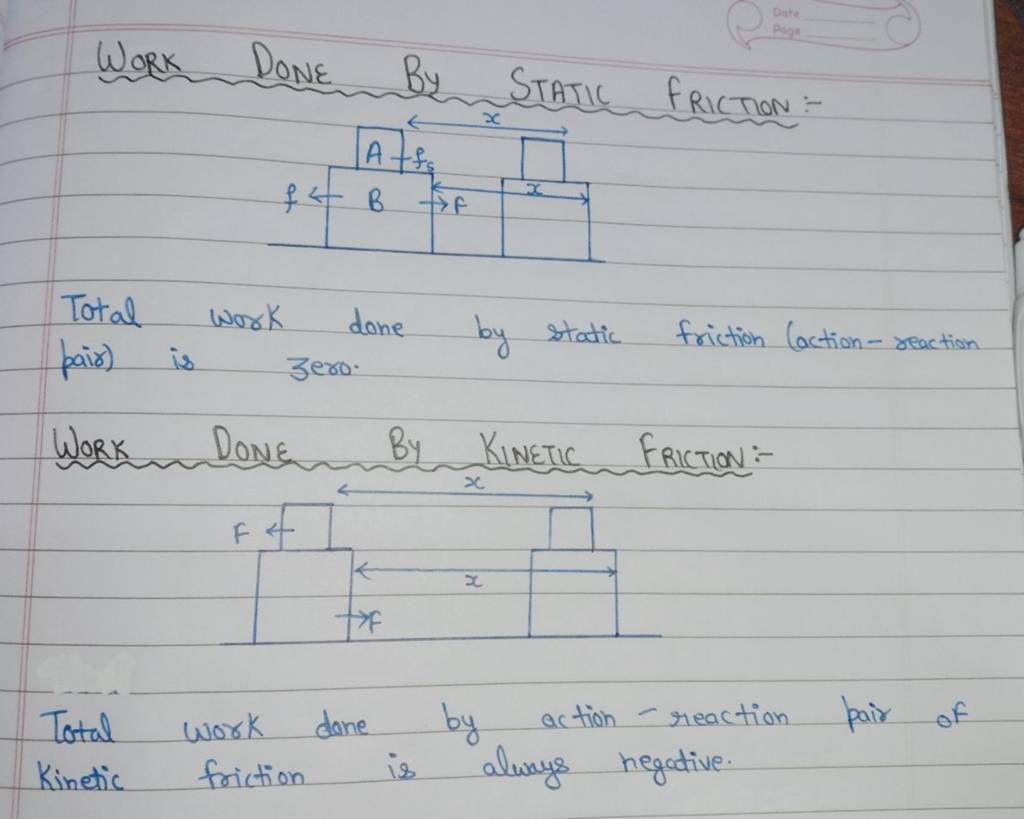 Date
Page
WORK DONE BY STATIC FRICTION :-
x
A fs
x
f B F
Total work done by static friction (action - reaction
pair) is zero.
WORK DONE BY KINETIC FRICTION :-
x
F
x
F
Total work done by action - reaction pair of
Kinetic friction is always negative.